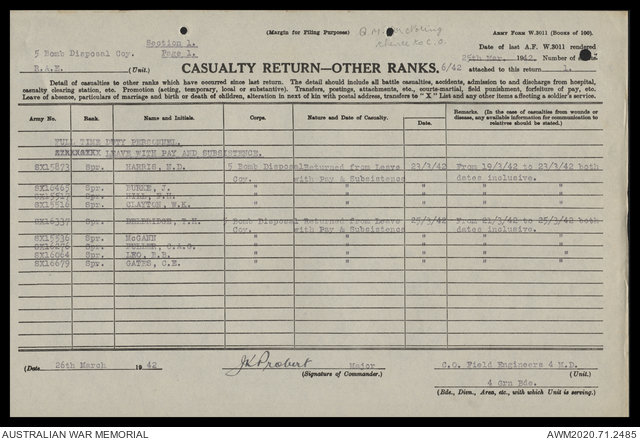 (Margin for Filing Purposes)
ARMY FORM W.3011 (BOOKS OF 100).
Section 1.
Date of last A.F. W.3011 rendered
5 Bomb Disposal Coy. Page 1.
25th Mar. 1942. Number of
R.A.E. (Unit.)
CASUALTY RETURN—OTHER RANKS. 6/42
attached to this return 1.
Detail of casualties to other ranks which have occurred since last return. The detail should include all battle casualties, accidents, admission to and discharge from hospital,
casualty clearing station, etc. Promotion (acting, temporary, local or substantive). Transfers, postings, attachments, etc., courts-martial, field punishment, forfeiture of pay, etc.
Leave of absence, particulars of marriage and birth or death of children, alteration in next of kin with postal address, transfers to "X" List and any other items affecting a soldier's service.
Army No. Rank. Name and Initials. Corps. Nature and Date of Casualty. Date. Remarks. (In the case of casualties from wounds or disease, any available information for communication to relatives should be stated.)
FULL TIME DUTY PERSONNEL.
LEAVE WITH PAY AND SUBSISTENCE.
SX15873 Spr. HARRIS, N.D. 5 Bomb Disposal Returned from Leave 23/3/42 From 19/3/42 to 23/3/42 both
Coy. with Pay & Subsistence dates inclusive.
SX10465 Spr. BURKE, J. " " " " "
Spr. " " " " "
SX15516 Spr. CLAYTON, W.K. " " " " "
SX16337 Spr. 5 Bomb Disposal Returned from Leave 25/3/42 From 21/3/42 to 25/3/42 both
Coy. with Pay & Subsistence dates inclusive.
SX15536 Spr. McCANN " " " " "
Spr. " " " " "
SX16064 Spr. LEO, R.B. " " " " "
SX16679 Spr. GATES, C.E. " " " " "
(Date 26th March 1942 JK Probert Major C.O. Field Engineers 4 M.D.
(Signature of Commander.) (Unit.)
4 Grn Bde.
(Bde., Divn., Area, etc., with which Unit is serving.)
AUSTRALIAN WAR MEMORIAL
AWM2020.71.2485